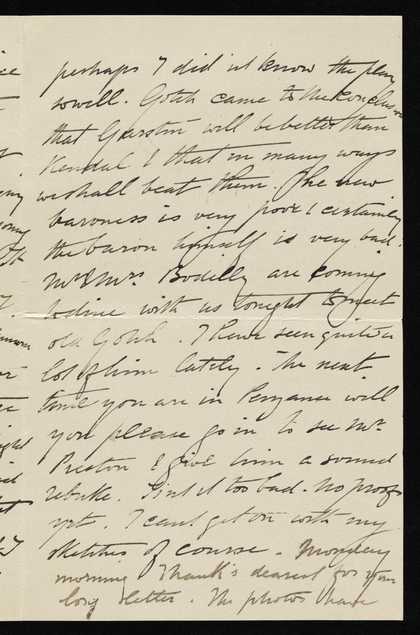 perhaps I didn't know the play
so well. Gotch came to the conclusion
that Garstin will be better than
Kendal & that in many ways
we shall beat them. The new
baroness is very poor & certainly
the baron himself is very bad.
Mr & Mrs Bodilly are coming
to dine with us tonight to meet
old Gotch. I have seen quite a
lot of him lately. The next
time you are in Penzance will
you please go in to see Mr
Preston & give him a sound
rebuke. Isn't it too bad. No proofs
yet. I can't get on with my
sketches of course. Monday
morning Thanks dearest for your
long letter. The photos have